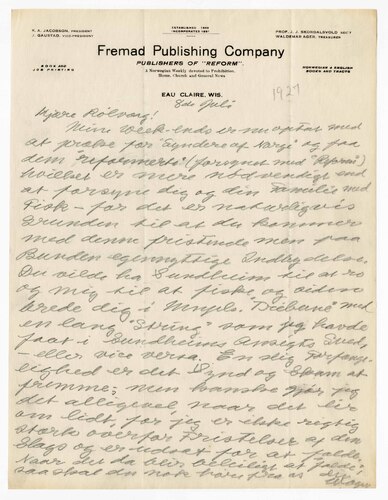 K. A. JACOBSON, PRESIDENT
J. GAUSTAD, VICE-PRESIDENT
ESTABLISHED 1886
INCORPORATED 1891
PROF. J. J. SKORDALSVOLD, SEC'Y
WALDEMAR AGER, TREASURER
Fremad Publishing Company
PUBLISHERS OF "REFORM"
BOOK AND
JOB PRINTING
A Norwegian Weekly devoted to Prohibition,
Home, Church and General News
NORWEGIAN & ENGLISH
BOOKS AND TRACTS
EAU CLAIRE, WIS.
8de Juli
1927
Kjære Rölvaag!
Mine Week-ends er nu optat med
at præke for Syndere af Norge og faa
dem reformerte (forsynet med "Reform")
hvilket er mere nødvendigt end
at forsyne dig og din Familie med
Fisk - for det er naturligvis
Grunden til at du kommer
med denne fristende men paa
Bunden egennyttige Indbydelse.
Du vilde ha Sundheim til at ro
og mig til at fiske og siden
brede dig i Mnpls. Tribune med
en lang "String" som jeg havde
faat i Sundheims Ansigts Sved,
- eller vice versa. En slig Forfænge-
lighed er det Synd og Skam at
fremme; men kanske gjør jeg
det allegevel naar det lir
om lidt, for jeg er ikke rigtig
stærk overfor Fristelser af den
Slags og er udsat for at falde.
Naar det da blir beleiligt at falde,
saa skal du nok høre fra os
Ager